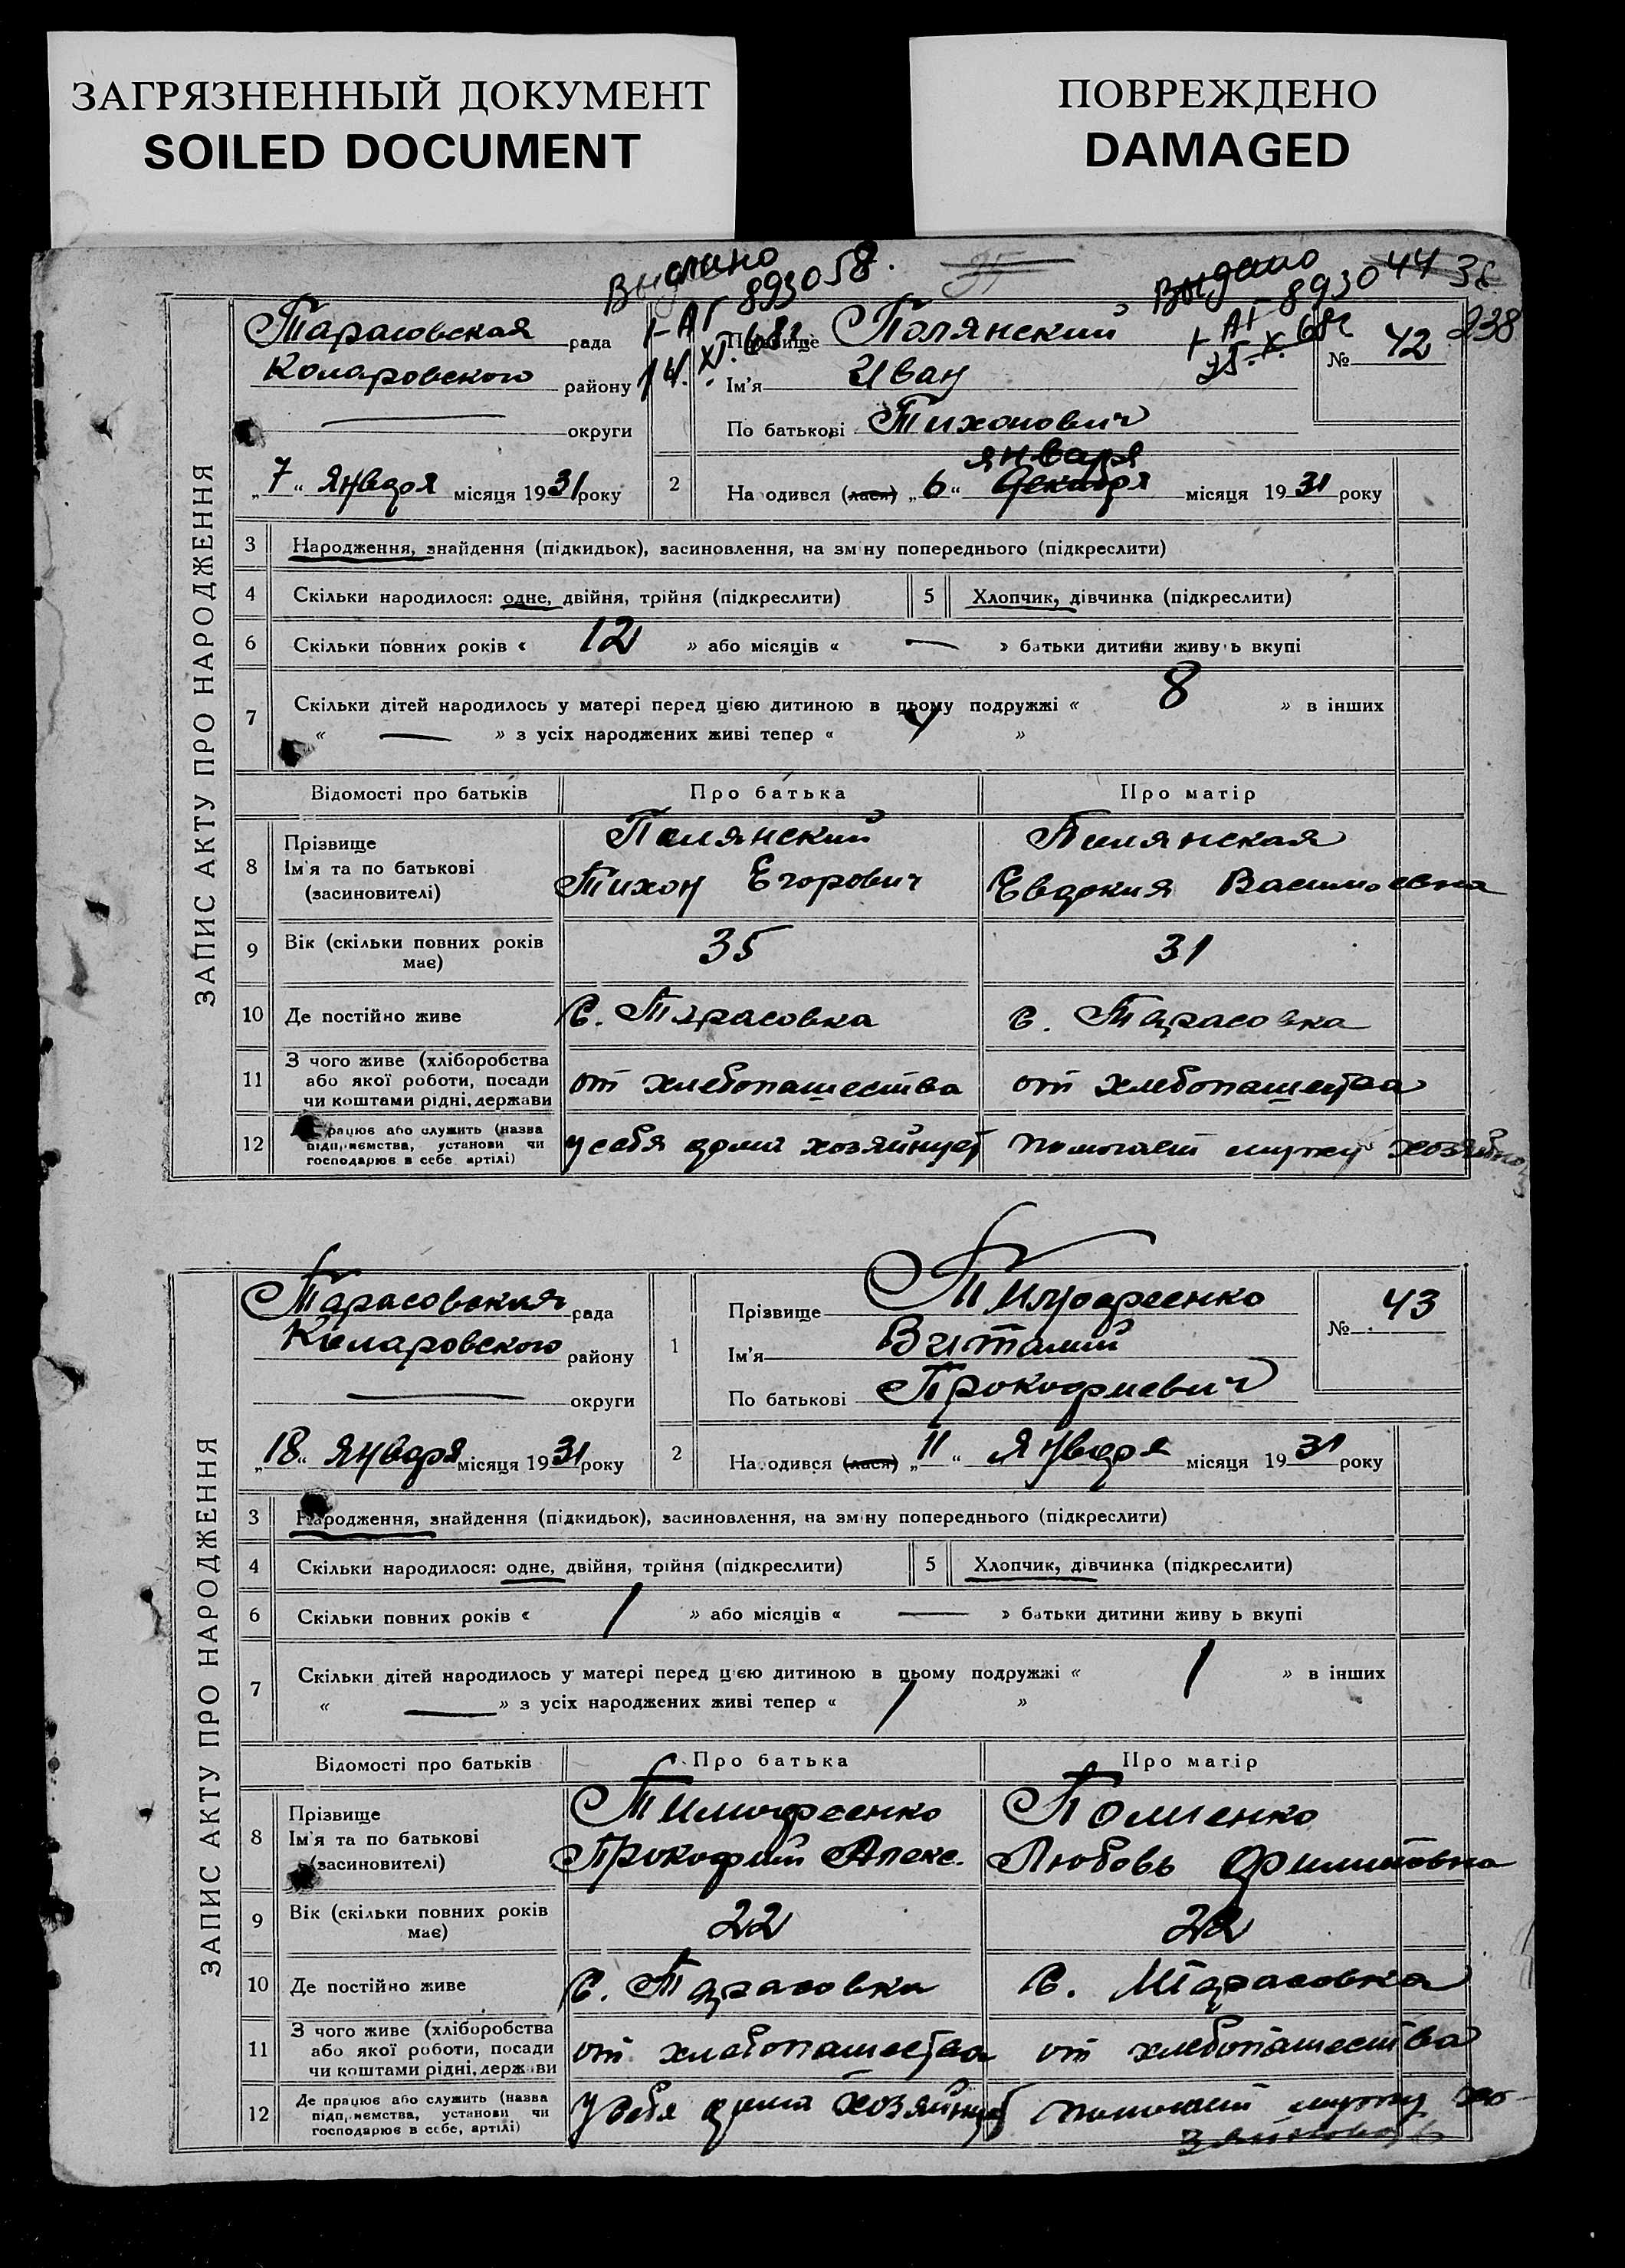 ЗАГРЯЗНЕННЫЙ ДОКУМЕНТ
SOILED DOCUMENT
ПОВРЕЖДЕНО
DAMAGED
Выдано
I-АГ 893058.
14.XI.68г
35
Выдано
I-АГ 893044
25.X.68г
38
238
ЗАПИС АКТУ ПРО НАРОДЖЕННЯ
Тарасовская рада
Коларовского району
— округи
„7“ Января місяця 1931 року
Прізвище Полянский
№ 42
Ім'я Иван
По батькові Тихонович
января
2 Народився (лася) „6“ Декабря місяця 1931 року
3 Народження, знайдення (підкидьок), засиновлення, на зміну попереднього (підкреслити)
4 Скільки народилося: одне, двійня, трійня (підкреслити)
5 Хлопчик, дівчинка (підкреслити)
6 Скільки повних років « 12 » або місяців « — » батьки дитини живуть вкупі
7 Скільки дітей народилось у матері перед цією дитиною в цьому подружжі « 8 » в інших
« — » з усіх народжених живі тепер « 4 »
Відомості про батьків Про батька Про матір
8 Прізвище Ім'я та по батькові (засиновителі)
Полянский Полянская
Тихон Егорович Евдокия Васильевна
9 Вік (скільки повних років має) 35 31
10 Де постійно живе с. Тарасовка с. Тарасовка
11 З чого живе (хліборобства або якої роботи, посади чи коштами рідні, держави
от хлебопашества от хлебопашества
12 працює або служить (назва підприємства, установи чи господарює в себе артілі)
у себя дома хозяйнует помогает мужу
ЗАПИС АКТУ ПРО НАРОДЖЕННЯ
Тарасовская рада
Коларовского району
— округи
„18“ Января місяця 1931 року
1 Прізвище Тимофеенко
№ 43
Ім'я Виталий
По батькові Прокофиевич
2 Народився (лася) „11“ Января місяця 1931 року
3 Народження, знайдення (підкидьок), засиновлення, на зміну попереднього (підкреслити)
4 Скільки народилося: одне, двійня, трійня (підкреслити)
5 Хлопчик, дівчинка (підкреслити)
6 Скільки повних років « 1 » або місяців « — » батьки дитини живуть вкупі
7 Скільки дітей народилось у матері перед цією дитиною в цьому подружжі « 1 » в інших
« — » з усіх народжених живі тепер « 1 »
Відомості про батьків Про батька Про матір
8 Прізвище Ім'я та по батькові (засиновителі)
Тимофеенко
Прокофий Алекс. Любовь Филиповна
9 Вік (скільки повних років має) 22 22
10 Де постійно живе с. Тарасовка с. Тарасовка
11 З чого живе (хліборобства або якої роботи, посади чи коштами рідні, держави
от хлебопашества от хлебопашества
12 Де працює або служить (назва підприємства, установи чи господарює в себе, артілі)
У себя дома хозяйнует помогает мужу хо-